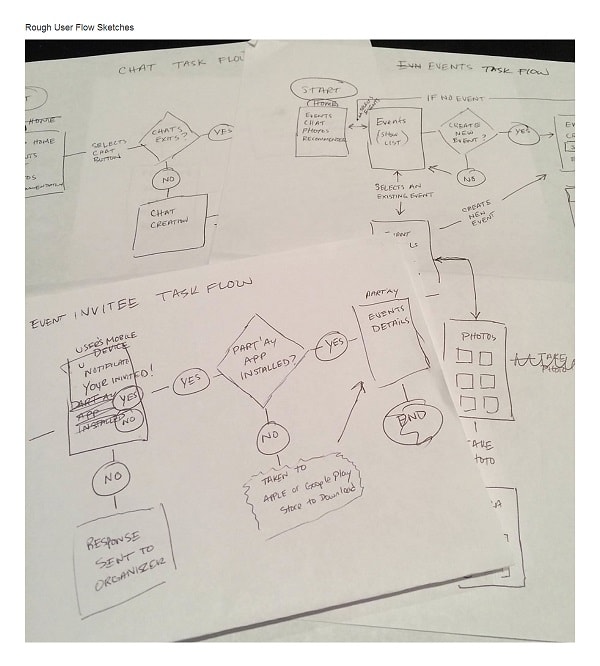 Rough User Flow Sketches
CHAT TASK FLOW
HOME
HOME
SELECTS
CHAT
BUTTON
CHATS
EXITS?
YES
NO
CHAT
CREATION
EVENTS TASK FLOW
START
HOME
EVENTS
CHAT
PHOTOS
Events
(SHOW
LIST)
IF NO EVENT
CREATE
NEW
EVENT?
YES
NO
SELECTS AN
EXISTING EVENT
CREATE
NEW
EVENT
PHOTOS
TAKE
PHOTO
EVENT INVITEE TASK FLOW
USER'S MOBILE
DEVICE
NOTIFICATE
YOUR INVITED!
PART'AY
APP
INSTALLED?
YES
NO
YES
NO
RESPONSE
SENT TO
ORGANIZER
PART'AY
APP
INSTALLED?
YES
NO
TAKEN TO
APPLE or Google Play
Store to Download
PARTAY
EVENTS
DETAILS
END